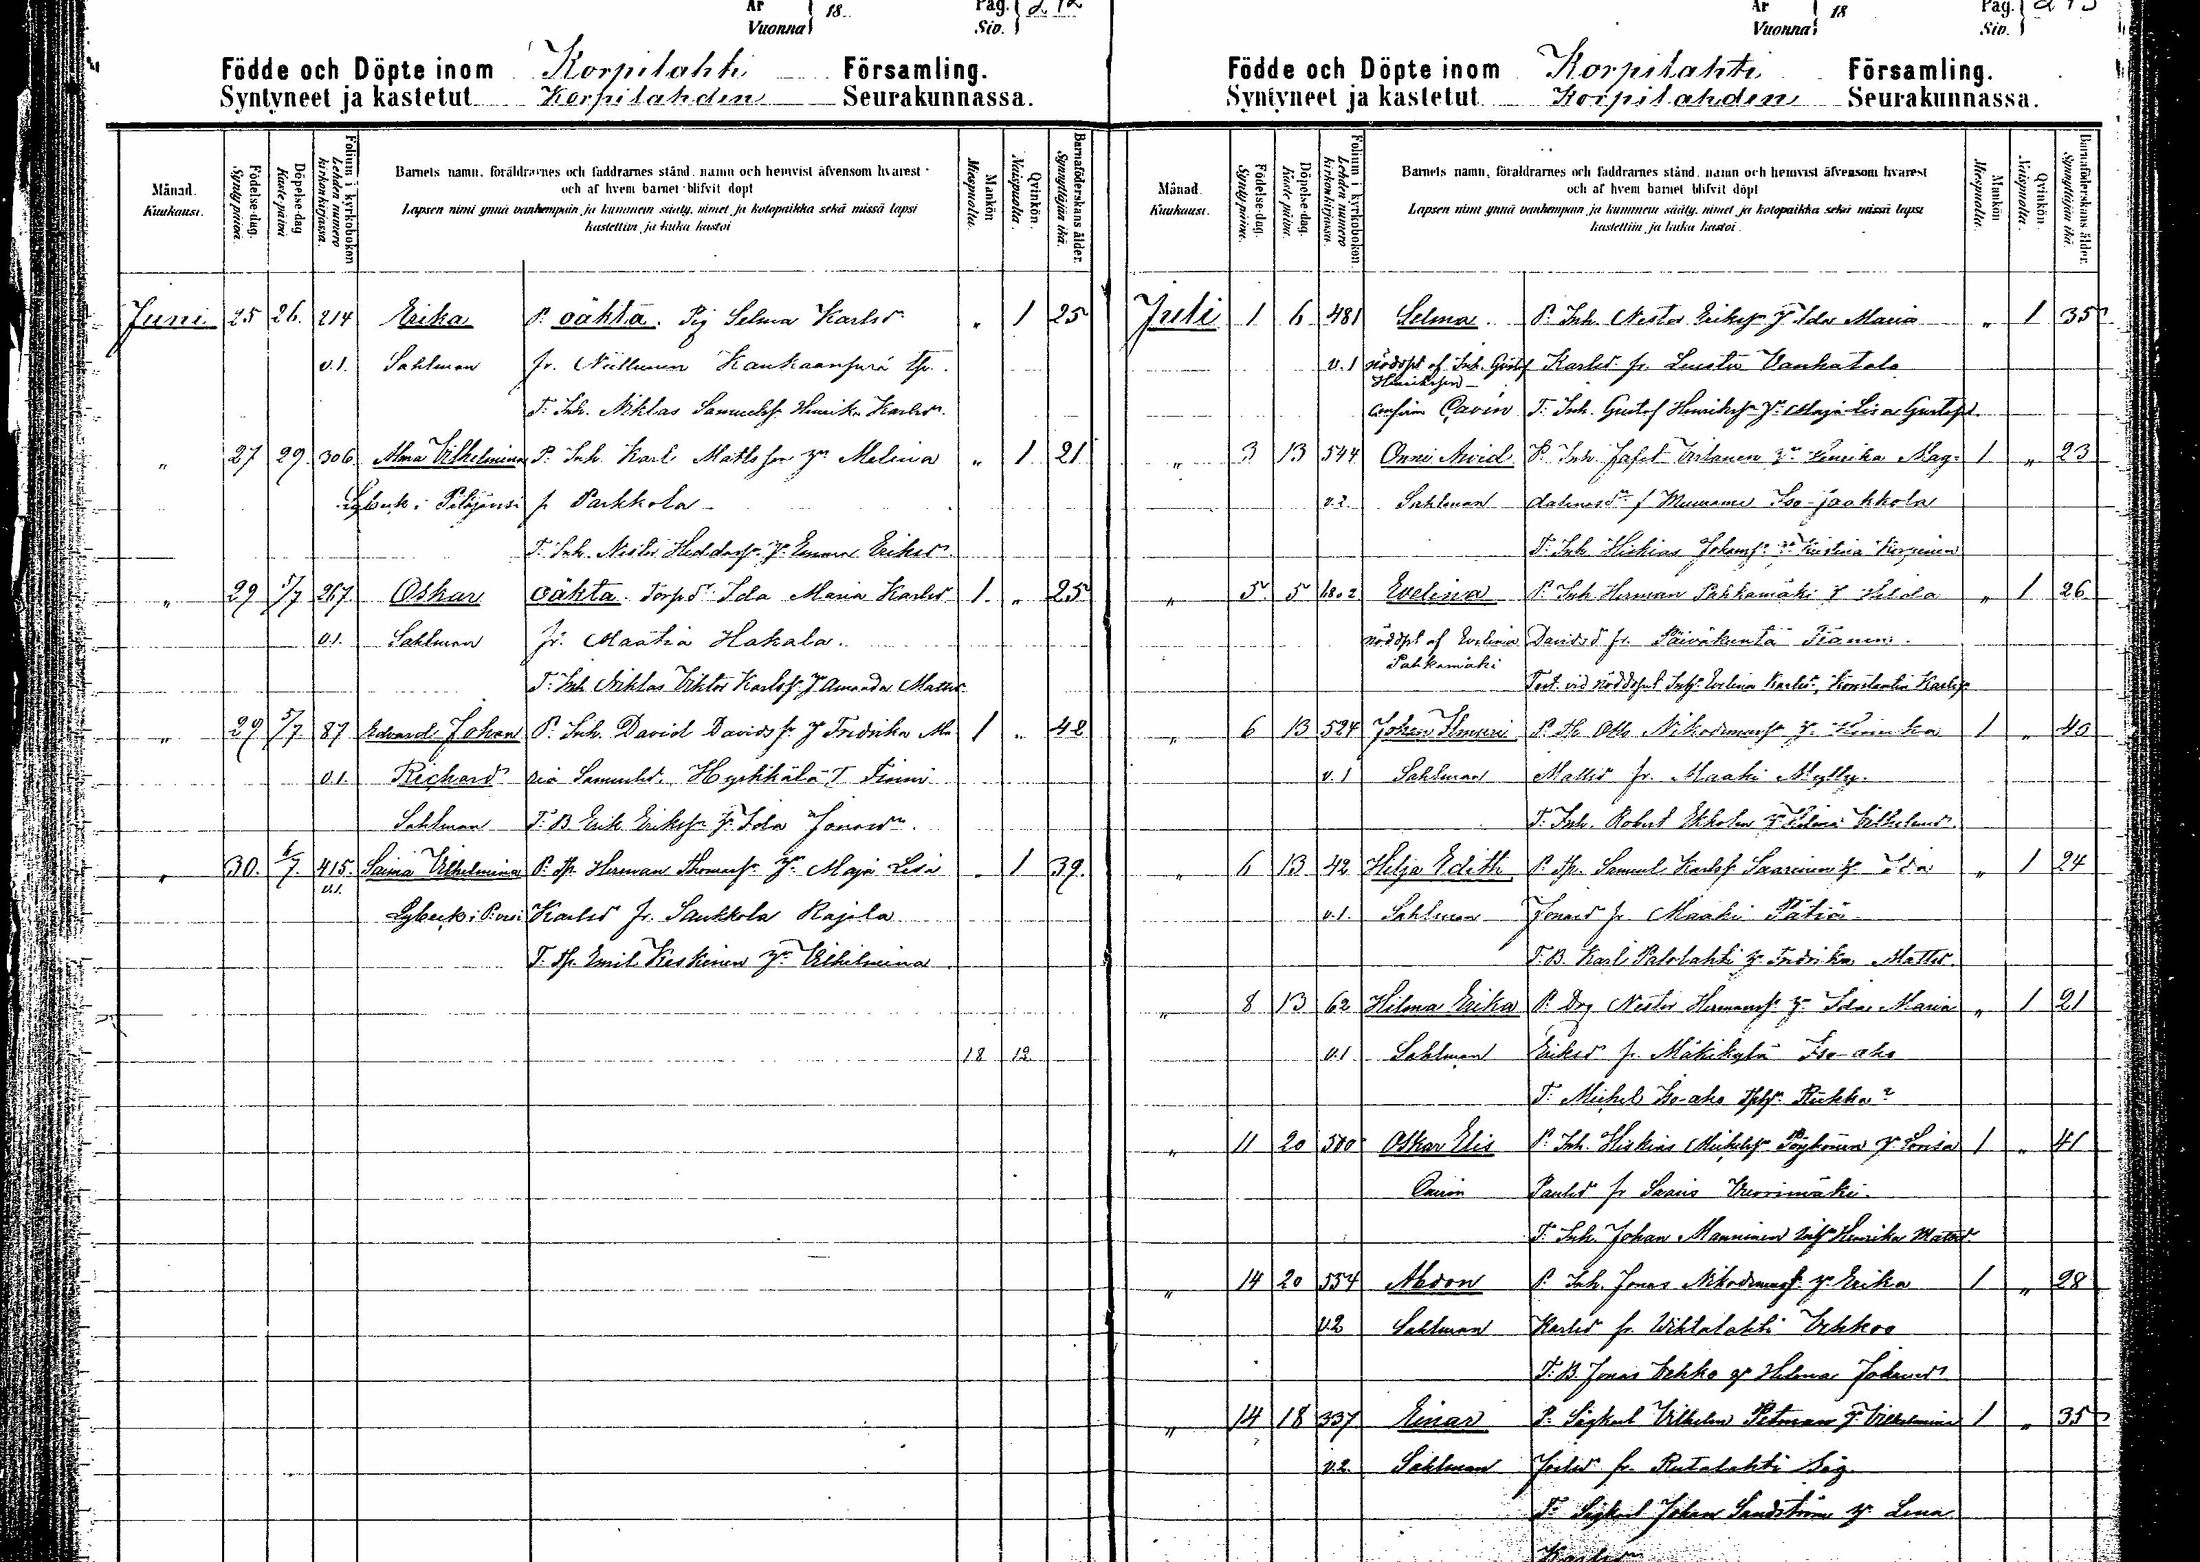 År
Vuonna
18
Pag.
Siv.
Födde och Döpte inom Korpilahti Församling.
Syntyneet ja kastetut Korpilahden Seurakunnassa.
Månad.
Kuukausi.
Födelse-dag.
Syntypäivä.
Döpelse-dag
Kastepäivä
Folium i kyrkoboken
Lehden numero kirkonkirjassa.
Barnets namn, föräldrarnes och faddrarnes stånd, namn och hemvist äfvensom hvarest
och af hvem barnet blifvit döpt
Lapsen nimi ynnä vanhempain ja kummein sääty, nimet ja kotopaikka sekä missä lapsi
kastettiin ja kuka kastoi
Mankön
Miespuolia.
Qvinkön.
Naispuolia.
Barnaföderskans ålder.
Synnyttäjän ikä.
Juni 25 26. 214 Erika P. oäkta. Pig Selma Karlsdr " 1 25
v.1. Sahlman fr. Kankaanperä tp.
T. Inh. Niklas Samuelsf. Henrika Karlsdr.
" 27 29 306 Alma Vilhelmina P. Inh. Karl Mattsson Melina " 1 21
Lybeck i Petäjävesi fr Parkkola
T. Inh. Nestor Emma Eriksdr.
" 29 5/7 267 Oskar oäkta. Torpdr Ida Maria Karlsdr 1. " 25
v.1. Sahlman fr. Maatia Hakala.
T. Inh. Niklas Viktor Karlsf. Amanda Mattsdr.
" 29 5/7 87 Edvard Johan P. Inh. David Davidsf. Fredrika Ma 1 " 42
v.1. Richard ria Samuelsdr. Hyrkkälä T Finni
Sahlman T. B. Erik Eriksf. Ida Jonasdr.
" 30. 6/7. 415. Saima Vilhelmina P. Tp. Herman Thomasf. Maja Lisa " 1 39.
v.1.
Lybeck i P.vesi Karlsdr fr. Saukkola Rajala
T. Tp. Emil Keskinen Vilhelmina
18 12
År
Vuonna
18
Pag.
Siv.
Födde och Döpte inom Korpilahti Församling.
Syntyneet ja kastetut Korpilahden Seurakunnassa.
Månad.
Kuukausi.
Födelse-dag.
Syntypäivä.
Döpelse-dag.
Kastepäivä.
Folium i kyrkoboken
Lehden numero kirkonkirjassa.
Barnets namn, föräldrarnes och faddrarnes stånd, namn och hemvist äfvensom hvarest
och af hvem barnet blifvit döpt
Lapsen nimi ynnä vanhempain ja kummein sääty, nimet ja kotopaikka sekä missä lapsi
kastettiin ja kuka kastoi.
Mankön
Miespuolia.
Qvinkön.
Naispuolia.
Barnaföderskans ålder.
Synnyttäjän ikä.
Juli 1 6 481 Selma P. Inh. Nestor Eriksf. Ida Maria " 1 35
v.1 nöddöpt af Inh. Gustaf Karlsdr fr. Vanhatalo
Henriksson
confirm Cavén T. Inh. Gustaf Henriksf. Maja Lisa Gustafsd.
" 3 13 544 Onni Arvid P. Inh. Jafet Virtanen Henrika Mag- 1 " 23
v.2. Sahlman dalenasdr f Muurame Iso-jaakkola
T. Inh. Hiskias Johansf. Kristina
" 5 5 Evelina P. Inh. Herman Pahkamäki Hilda " 1 26
nöddöpt af Evelina Davidsd fr. Päiväkunta
Pahkamäki
Test. vid nöddopet Evelina Karlsdr, Konstantin Karlsf.
" 6 13 524 Johan Ilmari P. Otto Nikodemusf. Henrika 1 " 40
v.1 Sahlman Mattsdr fr. Maaki Mylly.
T. Inh. Robert Ekholm Vilhelmsdr.
" 6 13 42 Hilja Edith P. Tp. Samuel Karlsf. Saarinen Ida " 1 24
v.1. Sahlman Jonasd fr Maaki Pätiä
T. B. Karl Patolahti Fredrika Mattsd.
" 8 13 62 Hilma Erika P. Drg Nestor Hermansf. Ida Maria " 1 21
v.1 Sahlman Eriksdr fr. Mäkikylä Iso-aho
T. Mickel Iso-aho
" 11 20 500 Oskar Elis P. Inh. Hiskias Mickelsf. Pöyhönen Lovisa 1 " 41
Cavén Paulsd fr Saaris Vuorimäki.
T. Inh. Johan Manninen Henrika Matsd
" 14 20 554 Abdon P. Inh. Jonas Nikodemusf. Erika 1 " 28
v.2 Sahlman Karlsd fr. Vihtalahti Vehkoo
T. B. Jonas Vehko Helena Johansd.
" 14 18 337 Einar P. Sågkarl Vilhelm Petman Vilhelmina 1 " 35
v.2. Sahlman Joelsd fr. Rutalahti Såg.
T. Sågkarl Johan Sandström Lena
Karlsdr